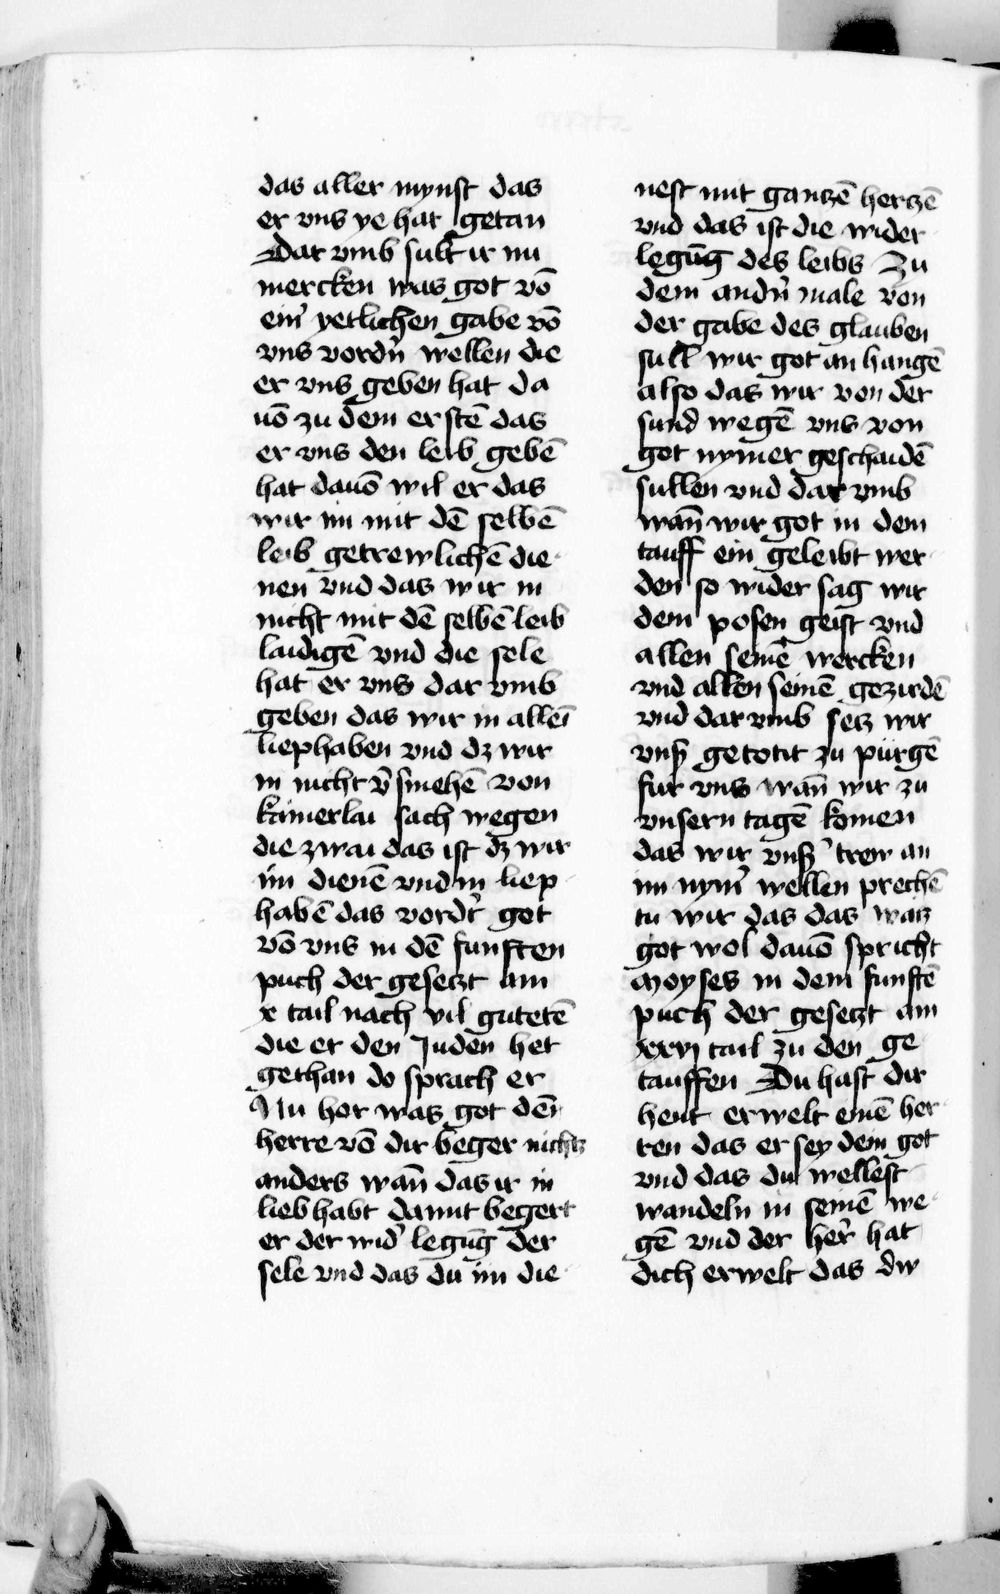 das aller mynst das
er vns ye hat getan
Dar vmb sult ir nu
mercken was got vō
eim̄ yetlichen gabe vō
vns vordn̄ wellen die
er vns geben hat da
uō zu dem erstē das
er vns den leib gebē
hat dauō wil er das
wir im mit dē selbē
leib getrewlichē die
nen vnd das wir in
nicht mit dē selbē leib
laidigē vnd die sele
hat er vns dar vmb
geben das wir in allem
liep haben vnd dz wir
in nicht v̄smehē von
kainerlai sach wegen
die zwai das ist dz wir
im dienē vnd in liep
habē das vordr̄t got
vō vns in dē funften
puch der gesetzt am
x tail nach vil gutetē
die er den Juden het
gethan do sprach er
Nu hor was got dein
herre vō dir beger nichtz
anders wan̄ das ir in
lieb habt damit begert
er der wid̄ legūg der
sele vnd das du im die
nest mit gantzē hertzē
vnd das ist die wider
legūg des leibs Zu
dem andn̄ male von
der gabe des glauben
sull wir got an hangē
also das wir von der
sund wegē vns von
got nymer geschaidē
sullen vnd dar vmb
wan̄ wir got in dem
tauff ein geleibt wer
den so wider sag wir
dem posen geist vnd
allen seinē wercken
vnd allen seinē gezirdē
vnd dar vmb setz wir
vnsʼ getotit zu purgē
fur vns wan̄ wir zu
vnsern tagē komen
das wir vnsʼ trew an
im nymʼ wellen prechē
tu wir das das waiz
got wol dauō spricht
Moyses in dem funftē
puch der gesetzt am
xxvj tail zu den ge
tauffen Du hast dir
heut erwelt einē her
ren das er sey dein got
vnd das du wellest
wandeln in seinē we
gē vnd der her̄ hat
dich erwelt das dw